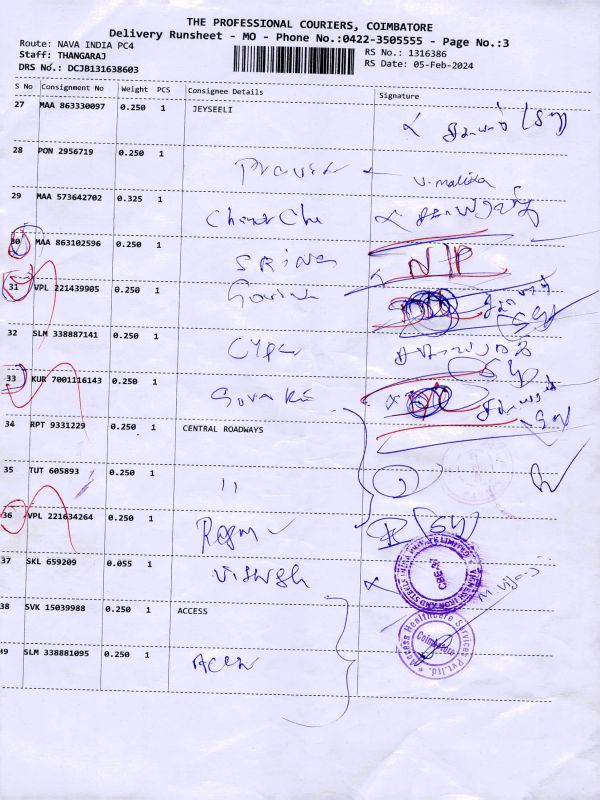 THE PROFESSIONAL COURIERS, COIMBATORE
Delivery Runsheet - MO - Phone No.:0422-3505555 - Page No.:3
Route: NAVA INDIA PC4
RS No.: 1316386
Staff: THANGARAJ
RS Date: 05-Feb-2024
DRS No.: DCJB131638603
S No Consignment No Weight PCS Consignee Details Signature
27 MAA 863330097 0.250 1 JEYSEELI
28 PON 2956719 0.250 1
Pravin V.malika
29 MAA 573642702 0.325 1
30 MAA 863102596 0.250 1
SRINI N/P
31 VPL 221439905 0.250 1
32 SLM 338887141 0.250 1
33 KUR 7001116143 0.250 1
34 RPT 9331229 0.250 1 CENTRAL ROADWAYS
35 TUT 605893 0.250 1
11
36 VPL 221634264 0.250 1
37 SKL 659209 0.055 1
38 SVK 15039988 0.250 1 ACCESS
Access Healthcare Services Pvt.Ltd.
Coimbatore
49 SLM 338881095 0.250 1